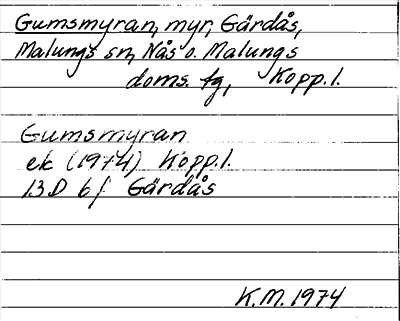 Gumsmyran, myr, Gärdås,
Malungs sn, Nås o. Malungs
doms. fg, Kopp. l.
Gumsmyran
ek (1974) Kopp. l.
13D 6f Gärdås
K.M. 1974